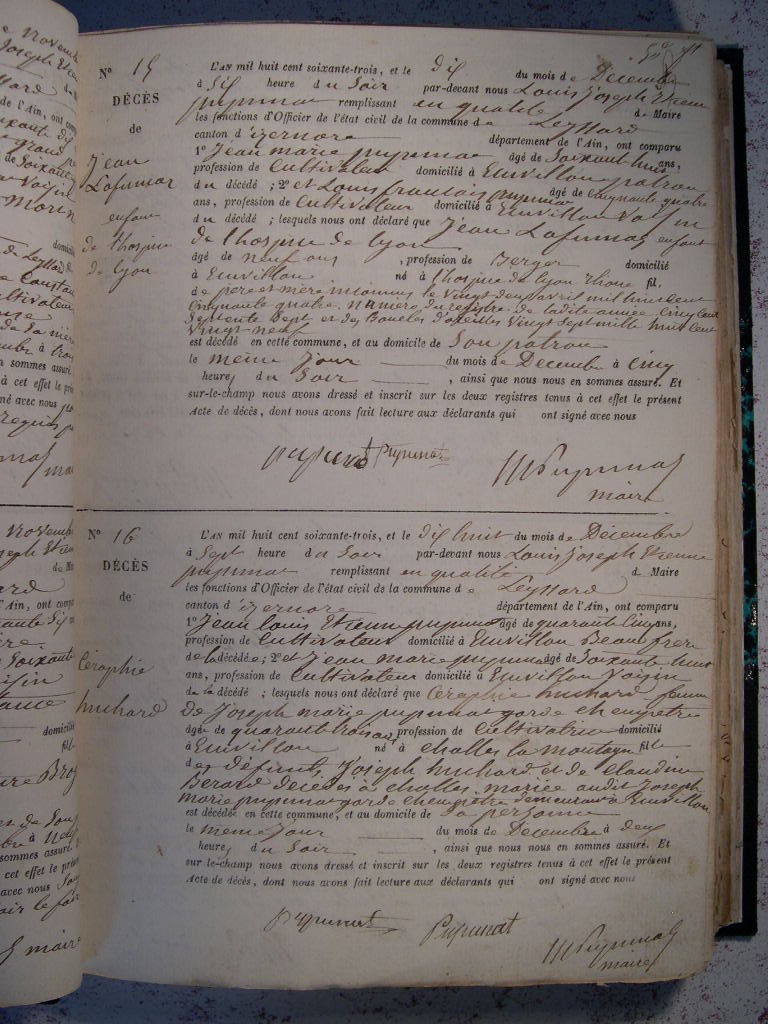 N° 15
DÉCÈS
de
Jean
Lafumas
enfant
de l'hospice
de lyon
L'AN mil huit cent soixante-trois, et le dix du mois de Décembre
à Six heure du Soir par-devant nous Louis Joseph Etienne
pupunat remplissant en qualité de Maire
les fonctions d'Officier de l'état civil de la commune de Leyssard
canton d'izernore département de l'Ain, ont comparu
1° Jean marie pupunat âgé de Soixante huit ans,
profession de Cultivateur domicilié à Euvillon patron
du décédé ; 2° et Louis français pupunat âgé de Cinquante quatre
ans, profession de Cultivateur domicilié à Euvillon Voisin
du décédé ; lesquels nous ont déclaré que Jean Lafumas enfant
de l'hospice de lyon
âgé de neuf ans , profession de Berger domicilié
à Euvillon né à l'hospice de lyon Rhone fil
de père et mère inconnus le Vingt deux avril mil huit cent
Cinquante quatre. numéro du registre de ladite année Cinq cent
Septente Sept et des Boucles d'oreilles Vingt Sept mille huit cent
Vingt neuf
est décédé en cette commune, et au domicile de Son patron
le meme Jour du mois de Décembre à Cinq
heures du Soir , ainsi que nous nous en sommes assuré. Et
sur-le-champ nous avons dressé et inscrit sur les deux registres tenus à cet effet le présent
Acte de décès, dont nous avons fait lecture aux déclarants qui ont signé avec nous
pupunat Pupunat
Pupunat
maire
N° 16
DÉCÈS
de
Céraphie
huchard
L'AN mil huit cent soixante-trois, et le dix huit du mois de Décembre
à Sept heure du Soir par-devant nous Louis Joseph Etienne
pupunat remplissant en qualité de Maire
les fonctions d'Officier de l'état civil de la commune de Leyssard
canton d'izernore département de l'Ain, ont comparu
1° Jean Louis Etienne pupunat âgé de quarante Cinq ans,
profession de Cultivateur domicilié à Euvillon Beau frere
de la décédée ; 2° et Jean marie pupunat âgé de Soixante huit
ans, profession de Cultivateur domicilié à Euvillon Voisin
de la décédé ; lesquels nous ont déclaré que Céraphie huchard femme
de Joseph marie pupunat garde champetre
âgé de quarante trois ans profession de Cultivatrice domicilié
à Euvillon né à challes la montagne fil
des défunts Joseph huchard et de Claudine
Berard décédés à challes. mariée audit Joseph
marie pupunat garde champetre demeurant à Euvillon
est décédée en cette commune, et au domicile de Sa personne
le meme Jour du mois de Décembre à deux
heures du Soir , ainsi que nous nous en sommes assuré. Et
sur-le-champ nous avons dressé et inscrit sur les deux registres tenus à cet effet le présent
Acte de décès, dont nous avons fait lecture aux déclarants qui ont signé avec nous
pupunat Pupunat
Pupunat
maire